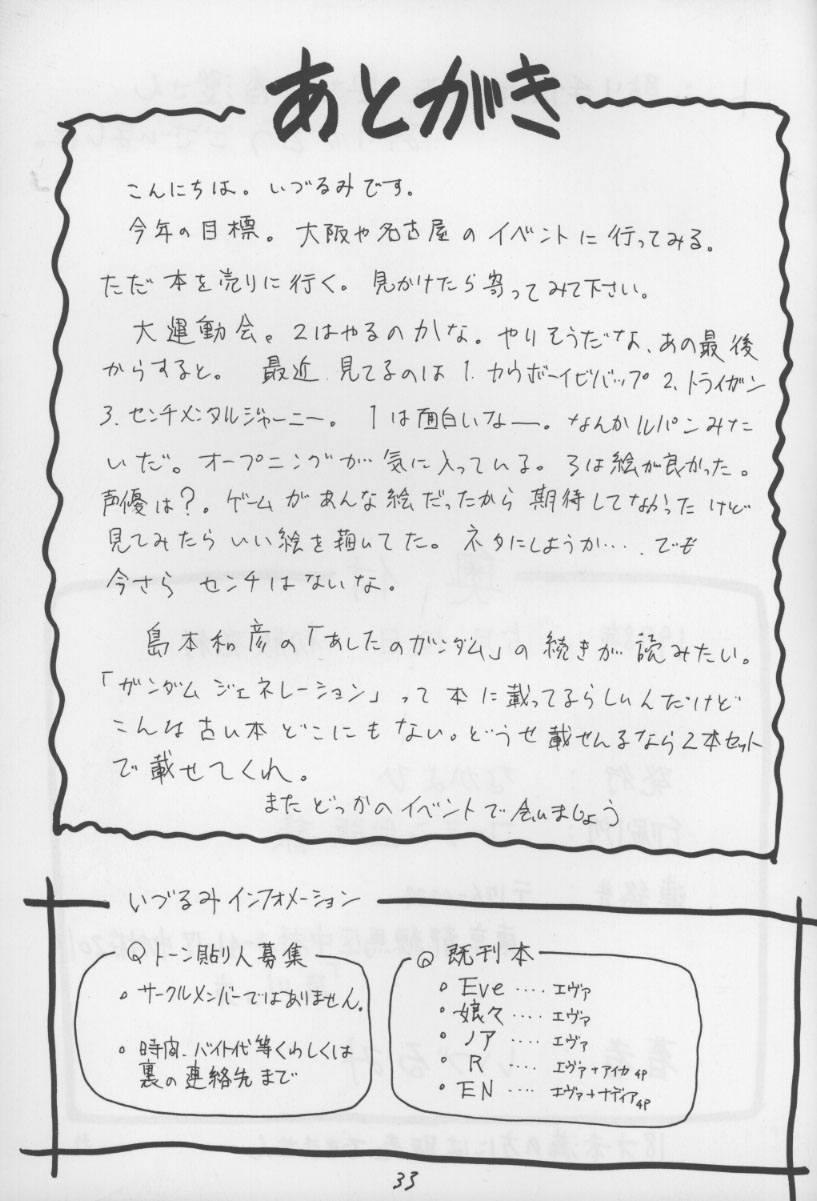 あとがき
こんにちは。いづるみです。
今年の目標。大阪や名古屋のイベントに行ってみる。
ただ本を売りに行く。見かけたら寄ってみて下さい。
大運動会。2はやるのかな。やりそうだな、あの最後
からすると。最近見てるのは 1. カウボーイビバップ 2. トライガン
3. センチメンタルジャーニー。1は面白いなー。なんかルパンみた
いだ。オープニングが気に入っている。3は絵が良かった。
声優は?。ゲームがあんな絵だったから期待してなかったけど
見てみたらいい絵を描いてた。ネタにしようか‥‥でも
今さらセンチはないな。
島本和彦の「あしたのガンダム」の続きが読みたい。
「ガンダムジェネレーション」って本に載ってるらしいんだけど
こんな古い本どこにもない。どうせ載せんるなら2本セット
で載せてくれ。
またどっかのイベントで会いましょう
いづるみインフォメーション
Qトーン貼り人募集
・サークルメンバーではありません。
・時間、バイト代等くわしくは
裏の連絡先まで
Q 既刊本
・Eve ‥‥ エヴァ
・娘々 ‥‥ エヴァ
・ノア ‥‥ エヴァ
・R ‥‥ エヴァ+アイカ4P
・EN ‥‥ エヴァ+ナディア4P
33